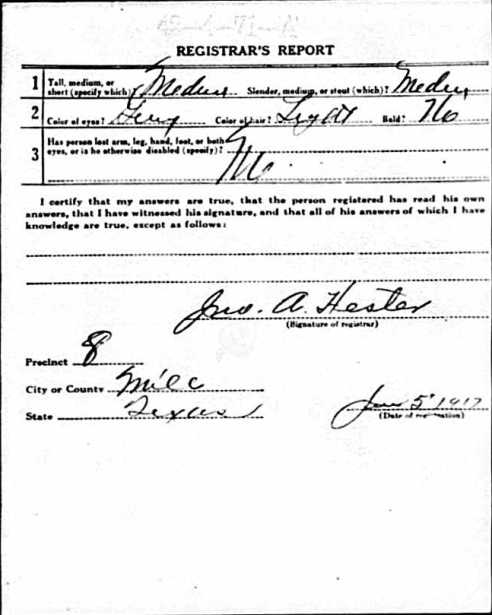 REGISTRAR'S REPORT
1 Tall, medium, or short (specify which)? Medium Slender, medium, or stout (which)? Medium
2 Color of eyes? Grey Color of hair? Light Bald? No
3 Has person lost arm, leg, hand, foot, or both eyes, or is he otherwise disabled (specify)? No
I certify that my answers are true, that the person registered has read his own
answers, that I have witnessed his signature, and that all of his answers of which I have
knowledge are true, except as follows:
Jno. A. Hester
(Signature of registrar)
Precinct 8
City or County
State Texas
June 5" 1917
(Date of registration)